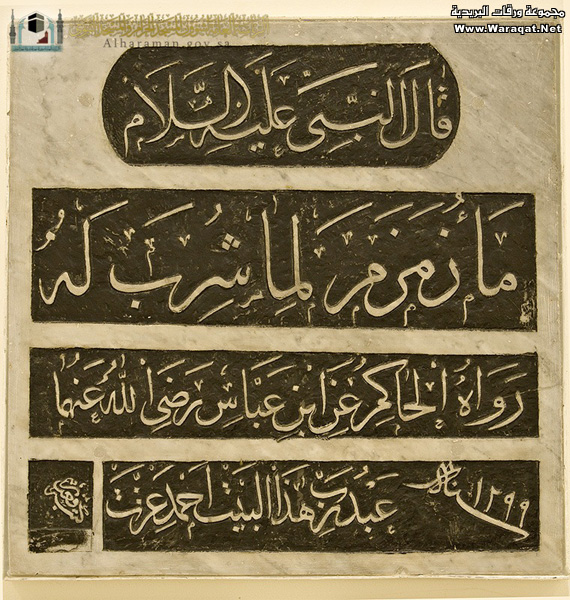 مجموعة ورقات البريدية
www.Waraqat.Net
Alharaman.gov.sa
قال النبي عليه السلام
ماء زمزم لما شرب له
رواه الحاكم عن ابن عباس رضي الله عنهما
١٢٩٩ سنة
عبد رب هذا البيت احمد عزت